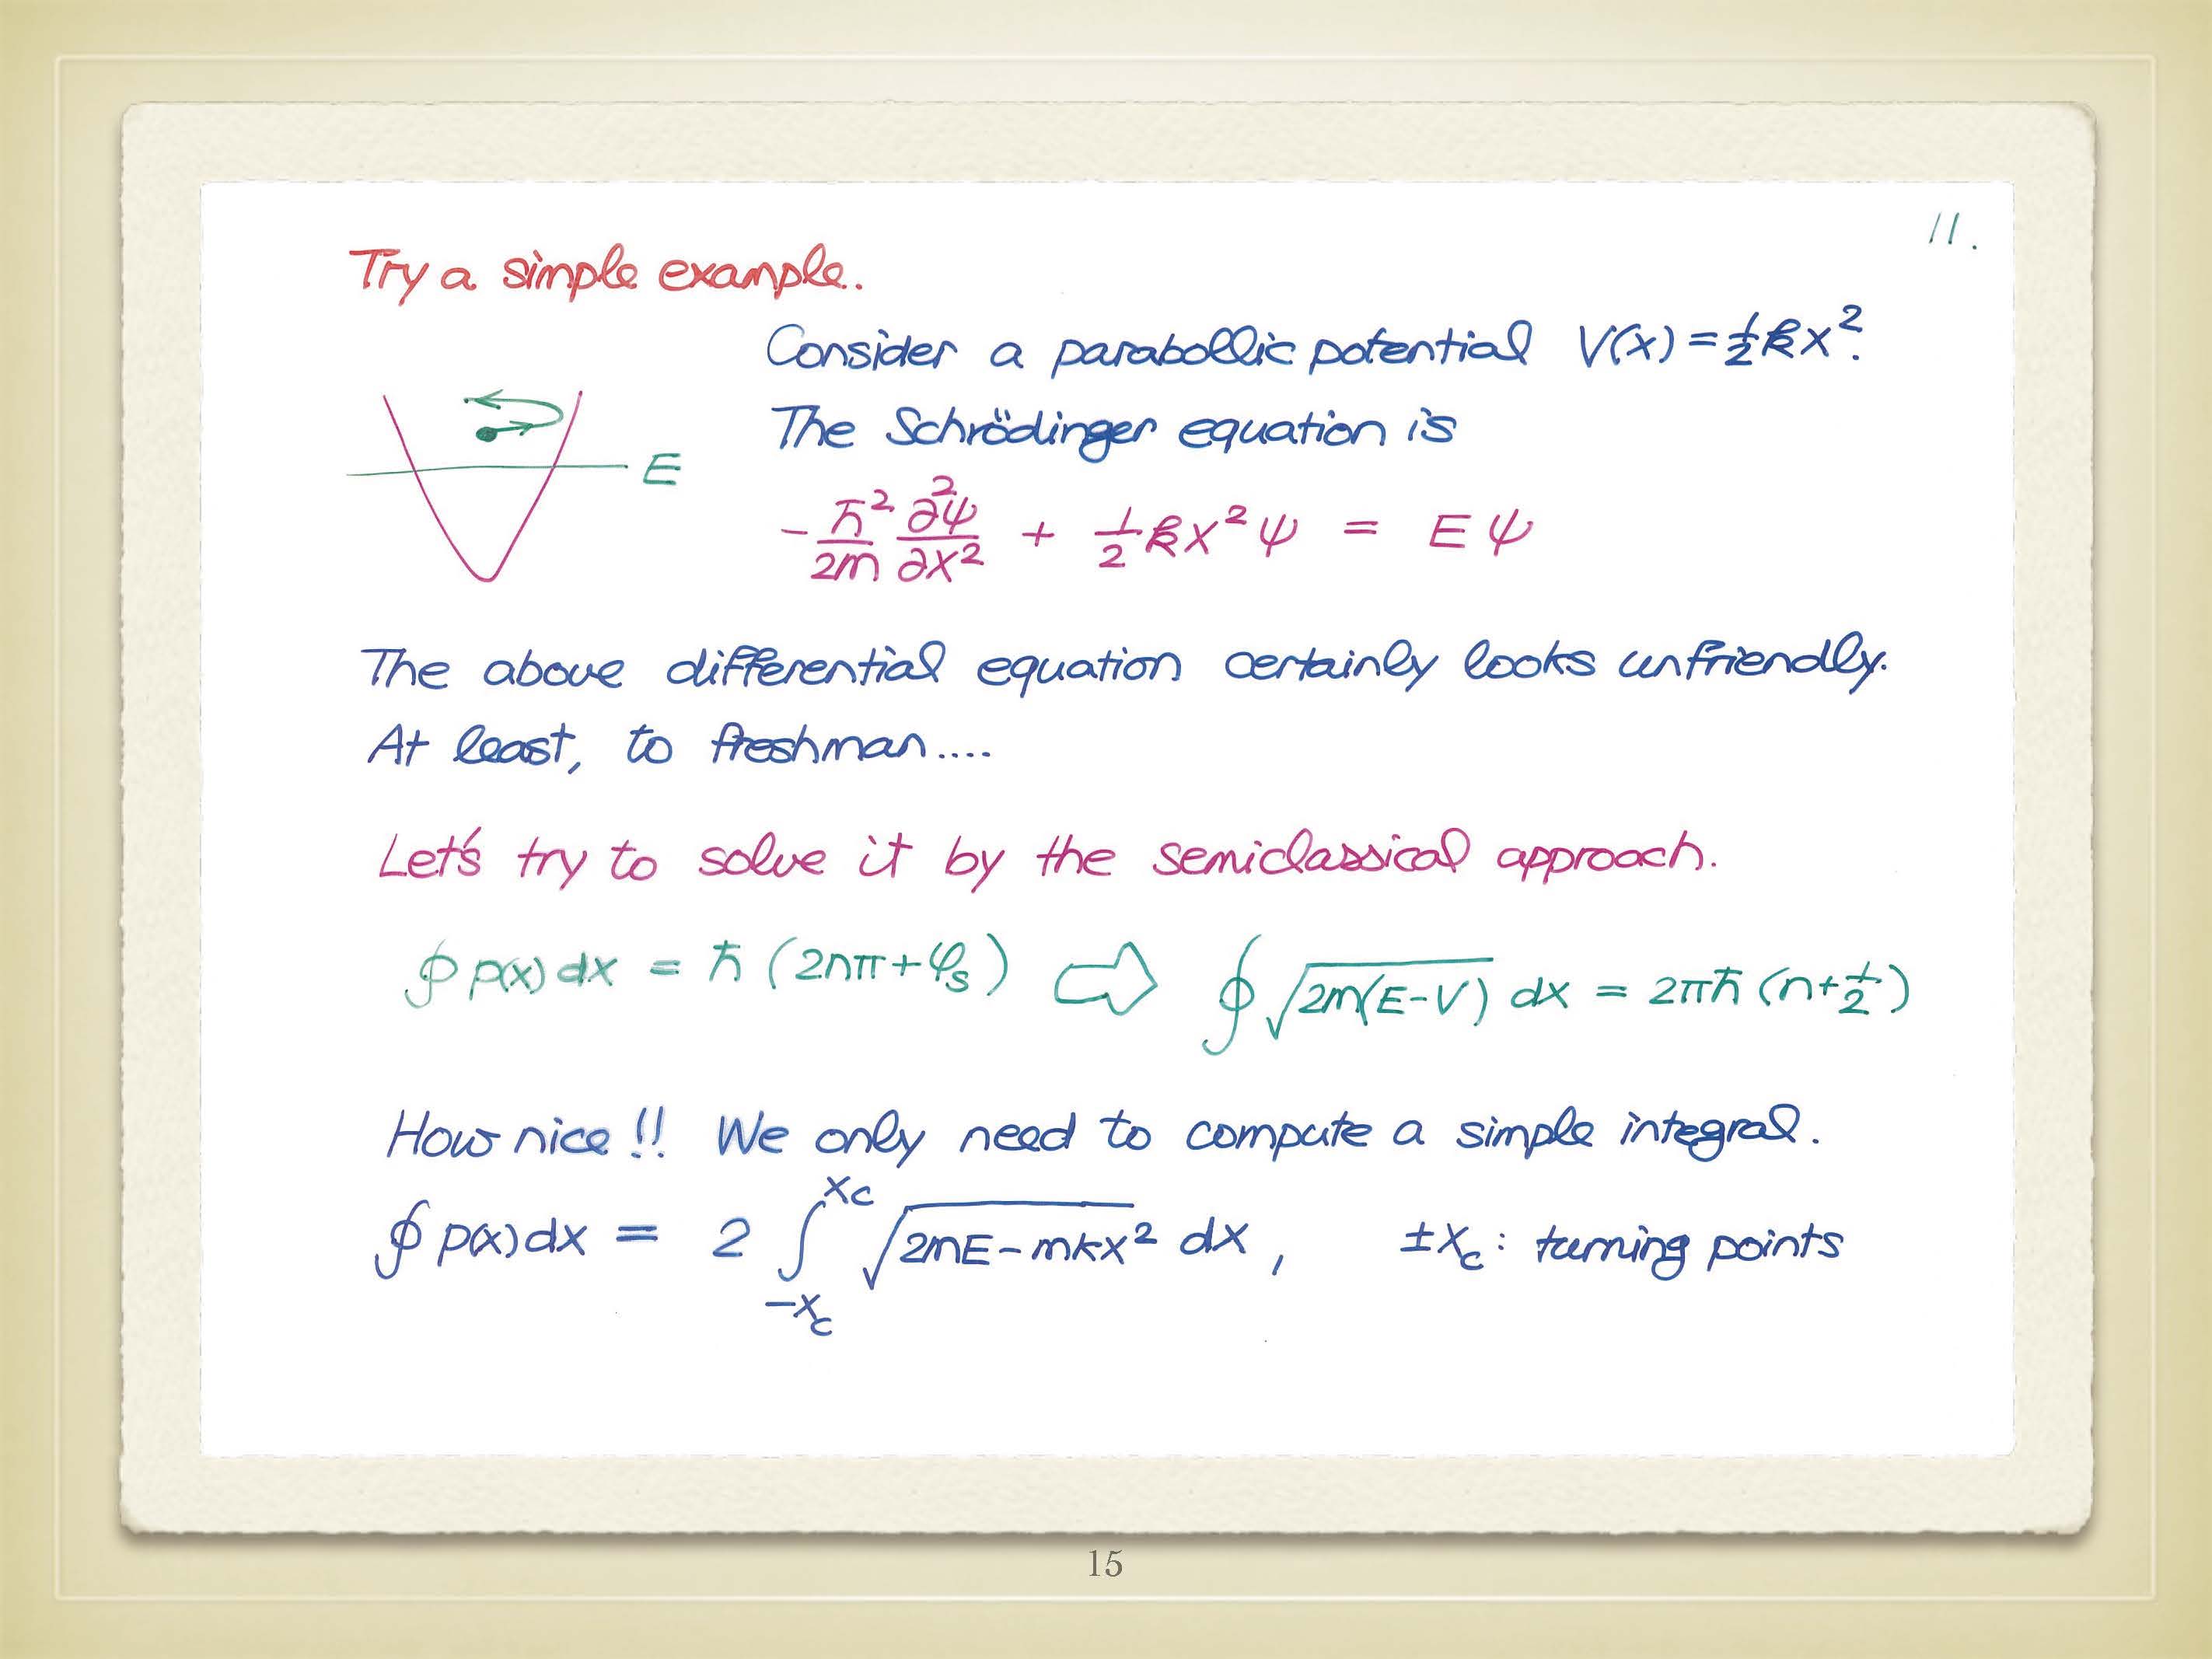 11.
Try a simple example.
Consider a parabollic potential V(x) = ½kx².
The Schrödinger equation is
E
-ħ²/2m ∂²ψ/∂x² + ½kx²ψ = Eψ
The above differential equation certainly looks unfriendly.
At least, to freshman....
Let's try to solve it by the semiclassical approach.
∮ p(x) dx = ħ (2nπ + φₛ) ⇨ ∮ √(2m(E-V)) dx = 2πħ (n+½)
How nice !! We only need to compute a simple integral.
∮ p(x) dx = 2 ∫_{-x_c}^{x_c} √(2mE - mkx²) dx , ±x_c : turning points
15